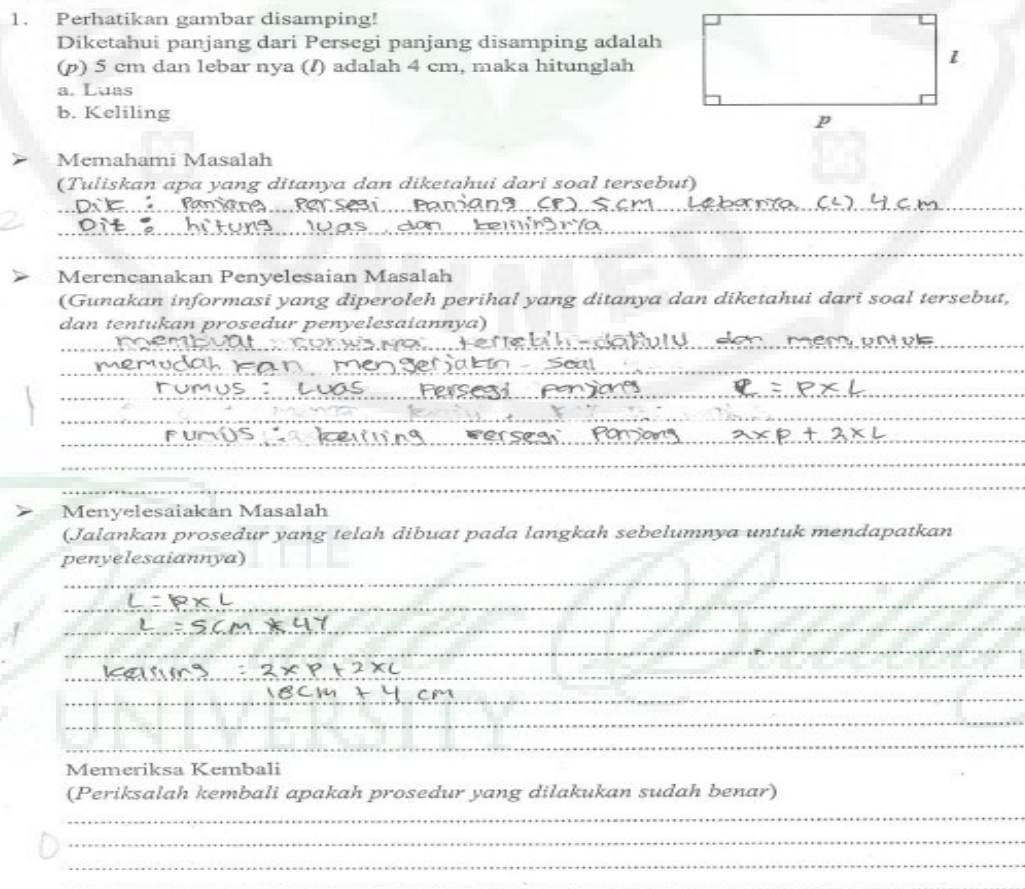 1. Perhatikan gambar disamping!
Diketahui panjang dari Persegi panjang disamping adalah
(p) 5 cm dan lebar nya (l) adalah 4 cm, maka hitunglah
a. Luas
b. Keliling
l
p
➢ Memahami Masalah
(Tuliskan apa yang ditanya dan diketahui dari soal tersebut)
Dik : Panjang Persegi Panjang (P) 5 cm Lebarnya (L) 4 cm
Dit : hitung luas dan kelilingnya
2
➢ Merencanakan Penyelesaian Masalah
(Gunakan informasi yang diperoleh perihal yang ditanya dan diketahui dari soal tersebut,
dan tentukan prosedur penyelesaiannya)
membuat terlebih-dahulu dan
memudahkan mengerjakan soal
1
rumus : Luas Persegi panjang = P x L
rumus : keliling Persegi Panjang 2 x P + 2 x L
➢ Menyelesaiakan Masalah
(Jalankan prosedur yang telah dibuat pada langkah sebelumnya untuk mendapatkan
penyelesaiannya)
L = P x L
1
L = 5 cm x 4
keliling : 2 x P + 2 x L
18 cm + 4 cm
THE
UNIVERSITY
Memeriksa Kembali
(Periksalah kembali apakah prosedur yang dilakukan sudah benar)
0